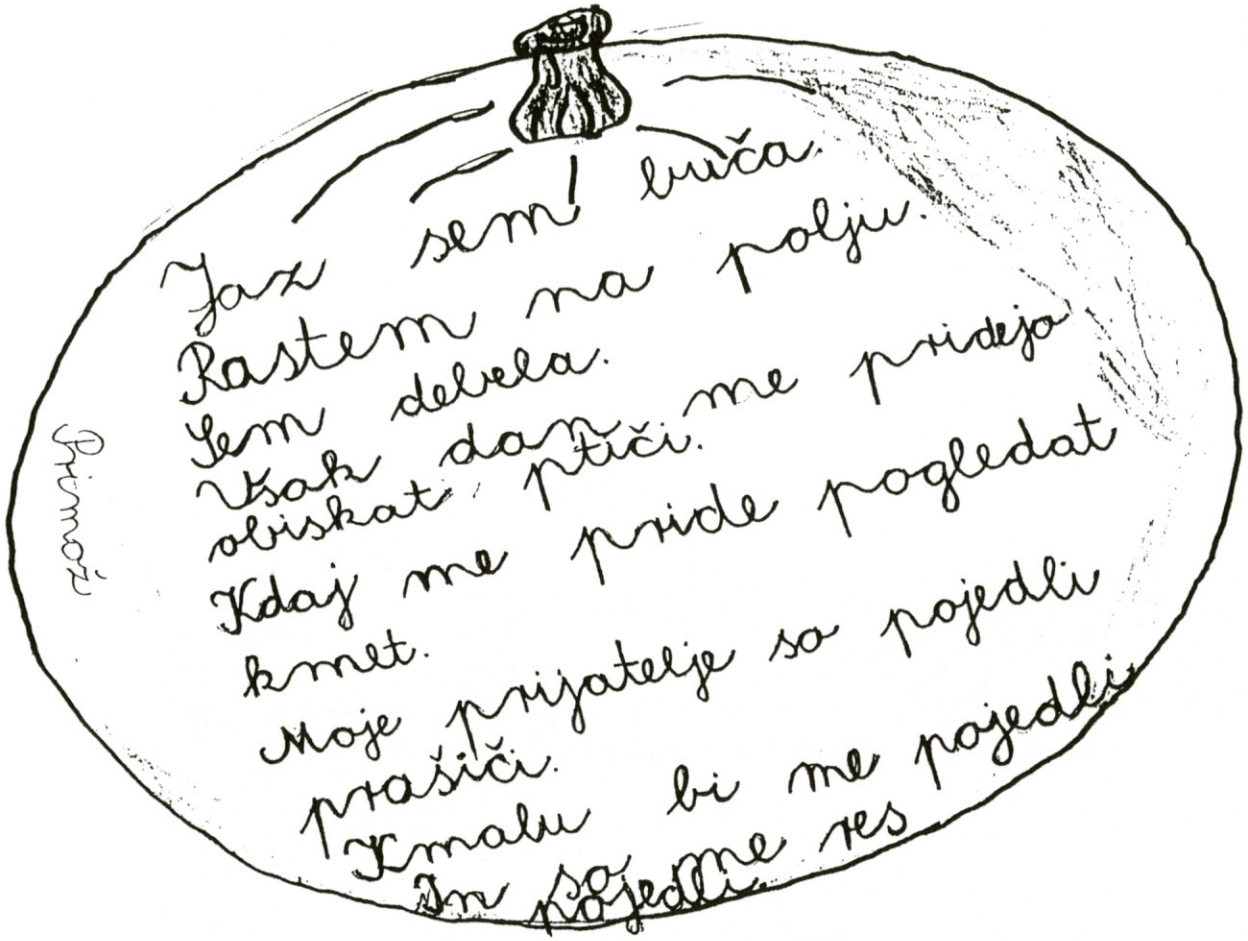 Jaz sem buča.
Rastem na polju.
Sem debela.
Vsak dan me pridejo
obiskat ptiči.
Kdaj me pride pogledat
kmet.
Moje prijatelje so pojedli
prašiči.
Kmalu bi me pojedli
In so me res
pojedli.
Primož